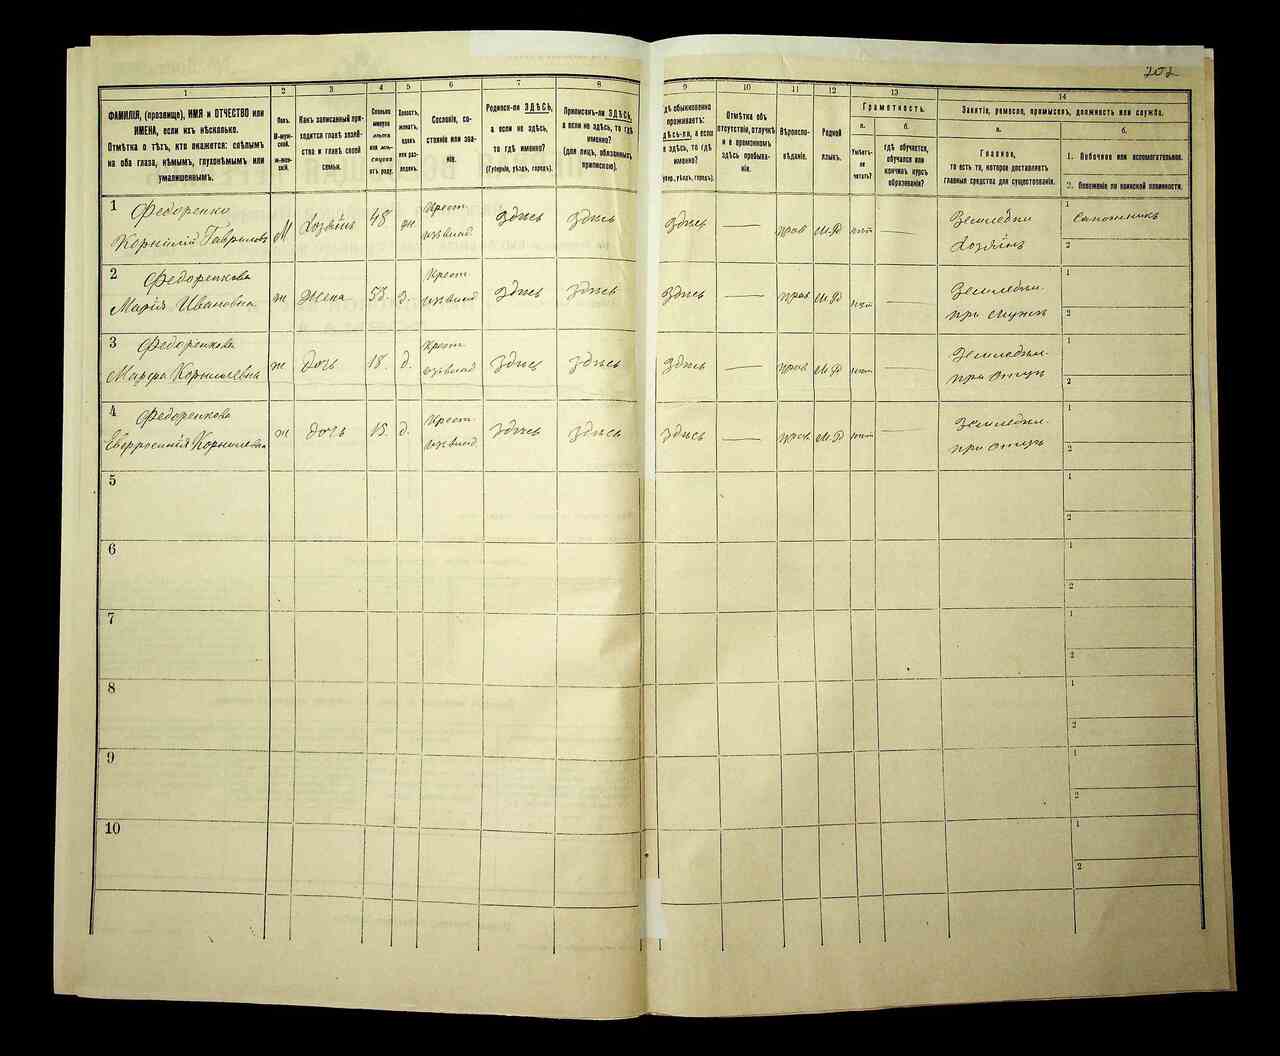 202
1
ФАМИЛІЯ, (прозвище), ИМЯ и ОТЧЕСТВО или
ИМЕНА, если ихъ нѣсколько.
Отмѣтка о тѣхъ, кто окажется: слѣпымъ
на оба глаза, нѣмымъ, глухонѣмымъ или
умалишеннымъ.
2
Полъ.
М-муж-
ской.
ж-жен-
скій.
3
Какъ записанный при-
ходится главѣ хозяй-
ства и главѣ своей
семьи.
4
Сколько
минуло
лѣтъ
или мѣ-
сяцевъ
отъ роду.
5
Холостъ,
женатъ,
вдовъ
или раз-
веденъ.
6
Сословіе, со-
стояніе или зва-
ніе.
7
Родился-ли ЗДѢСЬ,
а если не здѣсь,
то гдѣ именно?
(Губернія, уѣздъ, городъ).
8
Приписанъ-ли ЗДѢСЬ,
а если не здѣсь, то гдѣ
именно?
(для лицъ, обязанныхъ
припискою).
9
гдѣ обыкновенно
проживаетъ:
здѣсь-ли, а если
не здѣсь, то гдѣ
именно?
(Губер., уѣздъ, городъ).
10
Отмѣтка объ
отсутствіи, отлучкѣ
и о временномъ
здѣсь пребыва-
ніи.
11
Вѣроиспо-
вѣданіе.
12
Родной
языкъ.
13
Грамотность.
а.
Умѣетъ-
ли
читать?
б.
гдѣ обучается,
обучался или
кончилъ курсъ
образованія?
14
Занятіе, ремесло, промыселъ, должность или служба.
а.
Главное,
то есть то, которое доставляетъ
главныя средства для существованія.
б.
1. Побочное или вспомогательное.
2. Положеніе по воинской повинности.
1
Федоренко
Корнилій Гавриловъ
М
Хозяинъ
48
жн.
Крест.
здѣсь
здѣсь
здѣсь
—
прав
М.Р
нѣт
—
Земледѣл
Хозяинъ
1
Сапожникъ
2
2
Федоренкова
Марія Ивановна
ж
Жена
53.
З.
Крест.
здѣсь
здѣсь
здѣсь
—
прав
М.Р
нѣт
—
Земледѣл.
при мужѣ
1
2
3
Федоренкова
Марфа Корнилевна
ж
дочь
18.
д.
Крест.
здѣсь
здѣсь
здѣсь
—
прав
М.Р
нѣт
—
Земледѣл.
при отцѣ
1
2
4
Федоренкова
Евфросинія Корнилевна
ж
дочь
15.
д.
Крест.
здѣсь
здѣсь
здѣсь
—
прав
М.Р
нѣт
—
Земледѣл.
при отцѣ
1
2
5
1
2
6
1
2
7
1
2
8
1
2
9
1
2
10
1
2